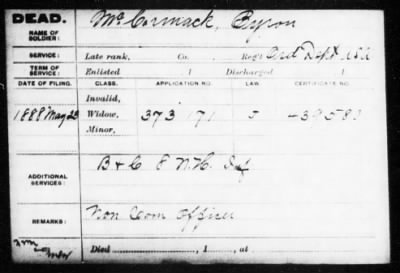 DEAD. McCormack, Byron
NAME OF SOLDIER:
SERVICE: Late rank, Co. Reg't Ord Dept USA
TERM OF SERVICE: Enlisted 1 Discharged 1
DATE OF FILING. CLASS. APPLICATION NO. LAW. CERTIFICATE NO.
Invalid,
1888 May 28 Widow, 373 171 439583
Minor,
ADDITIONAL SERVICES: B & C 8 N.H. Inf
REMARKS: Non Com Officer
Died , 1 , at